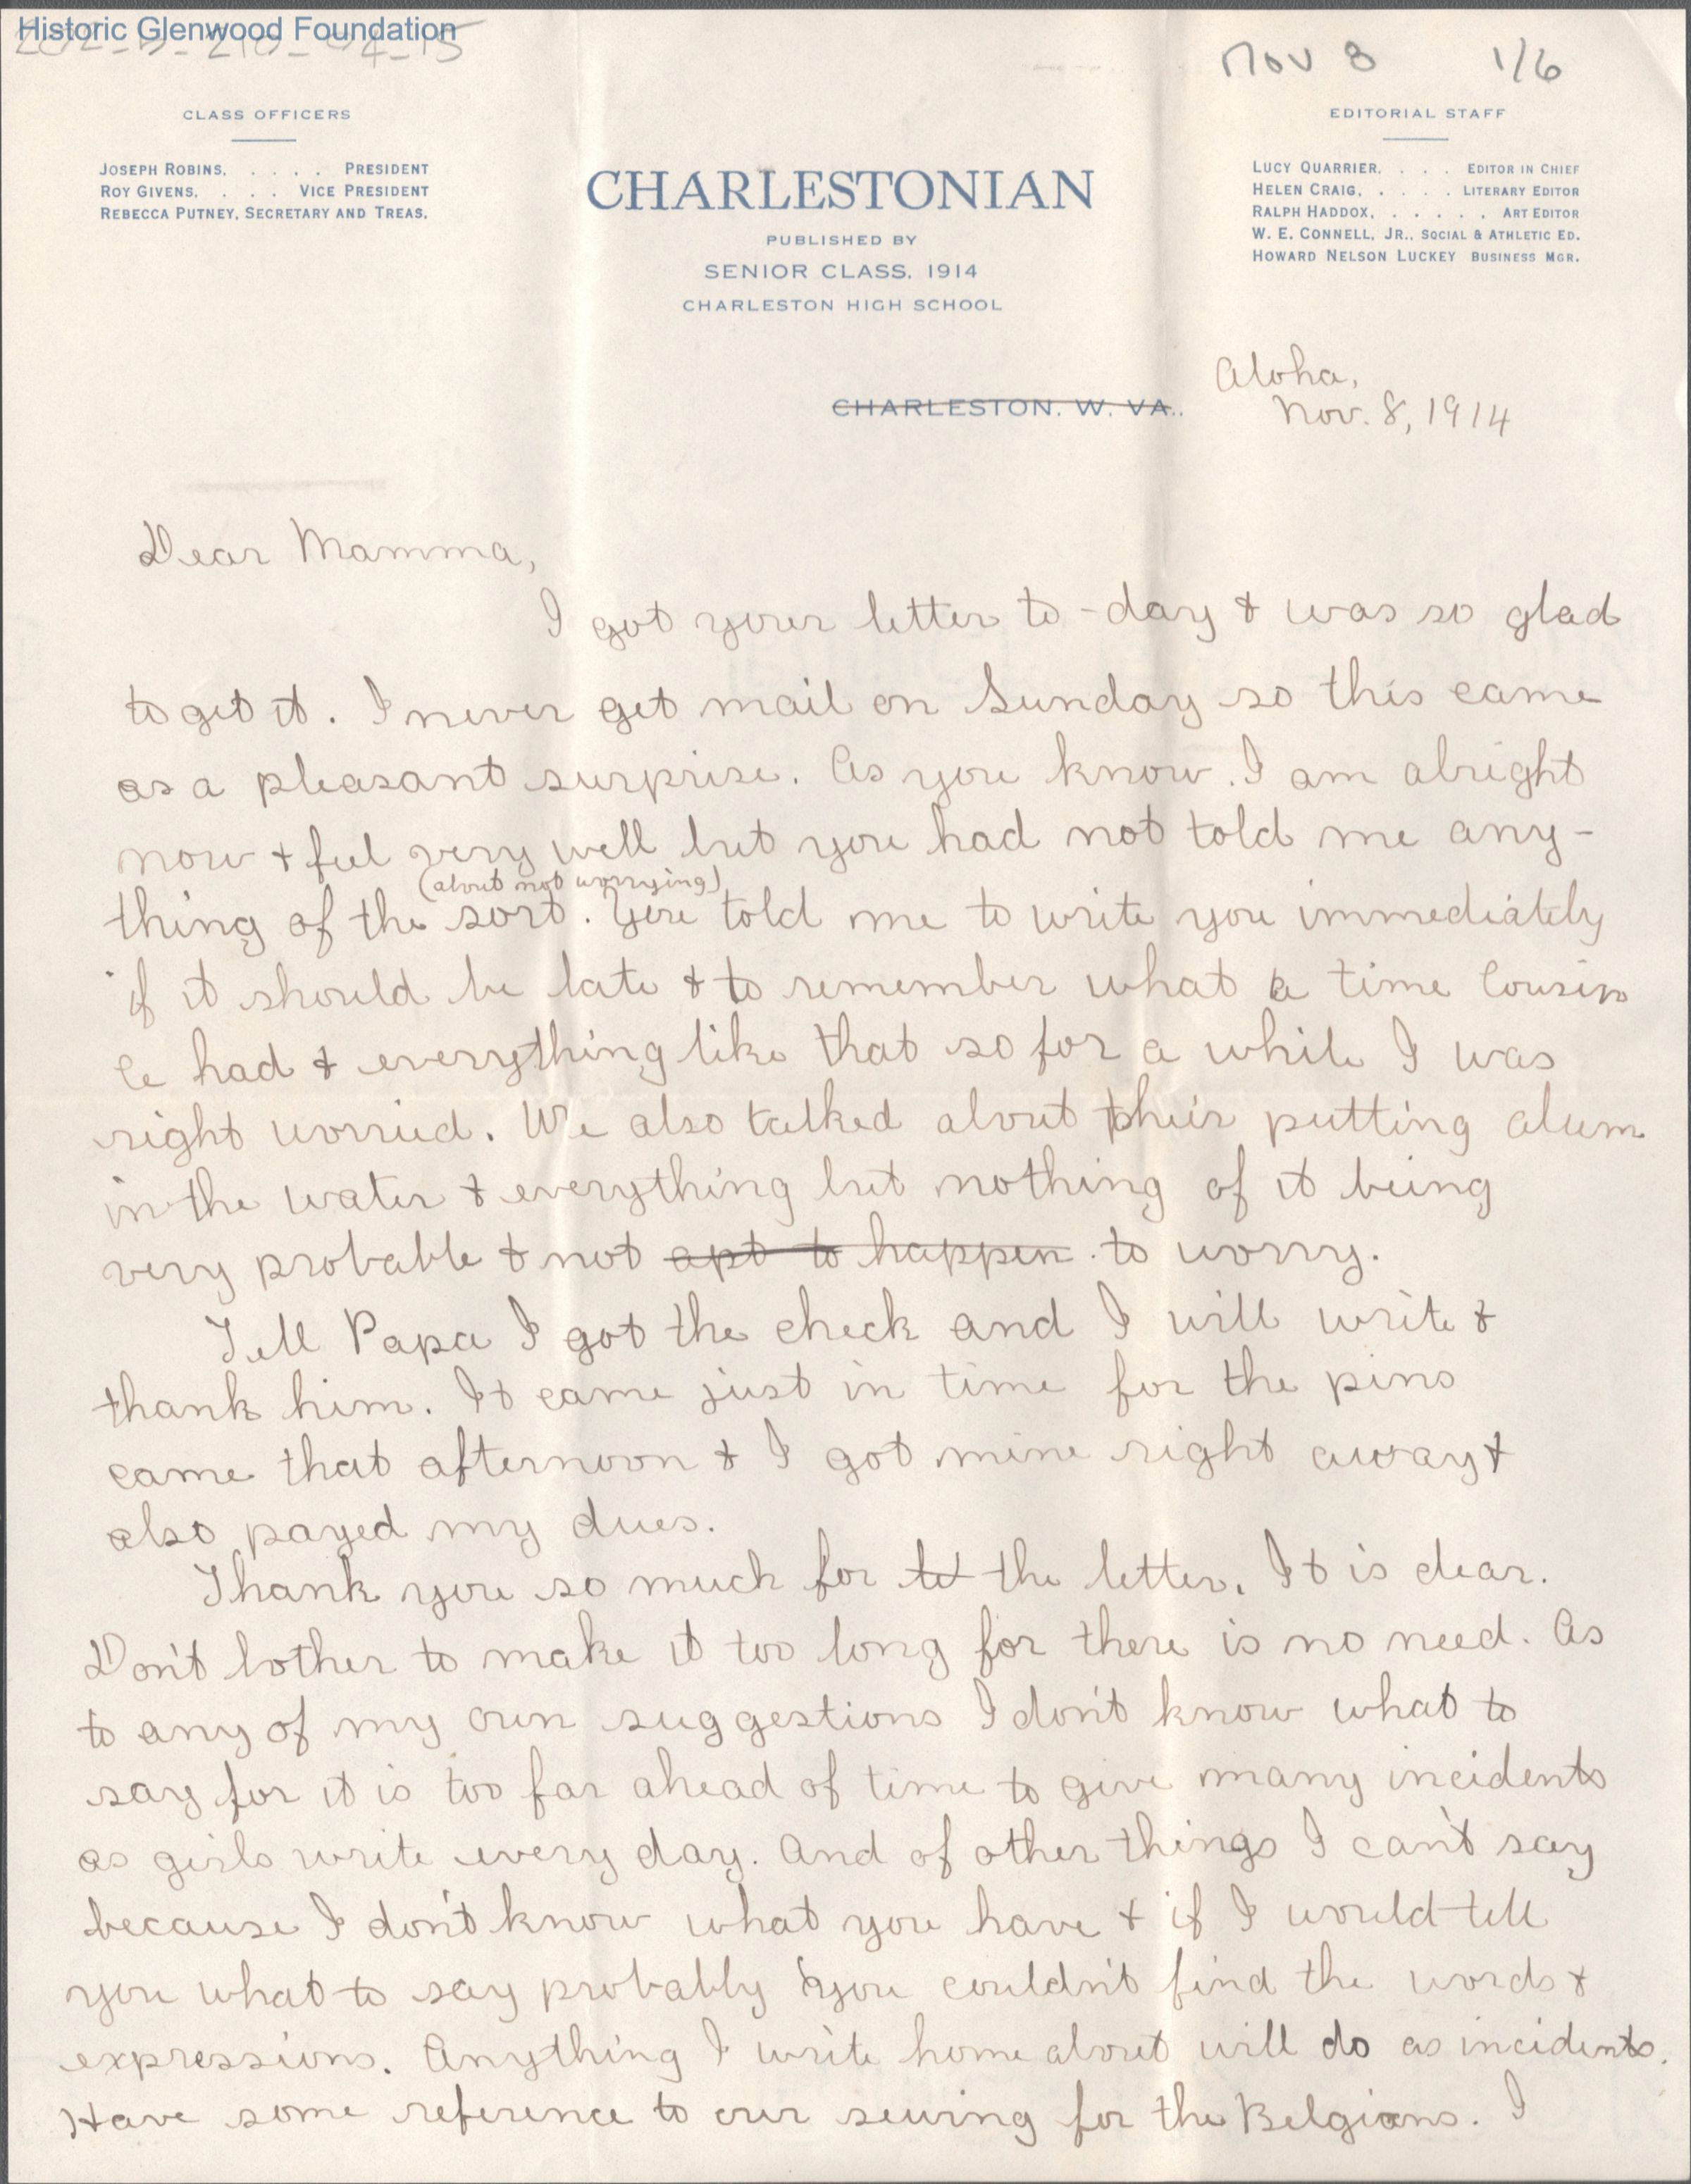 Historic Glenwood Foundation
Nov 8 1/6
CLASS OFFICERS
JOSEPH ROBINS, . . . . PRESIDENT
ROY GIVENS, . . . VICE PRESIDENT
REBECCA PUTNEY, SECRETARY AND TREAS.
CHARLESTONIAN
PUBLISHED BY
SENIOR CLASS, 1914
CHARLESTON HIGH SCHOOL
EDITORIAL STAFF
LUCY QUARRIER, . . . EDITOR IN CHIEF
HELEN CRAIG, . . . . LITERARY EDITOR
RALPH HADDOX, . . . . . ART EDITOR
W. E. CONNELL, JR., SOCIAL & ATHLETIC ED.
HOWARD NELSON LUCKEY BUSINESS MGR.
CHARLESTON, W. VA.
Aloha,
Nov. 8, 1914
Dear Mamma,
I got your letter to-day & was so glad
to get it. I never get mail on Sunday so this came
as a pleasant surprise. As you know. I am alright
now & feel very well but you had not told me any-
(about not worrying)
thing of the sort. You told me to write you immediately
if it should be late & to remember what a time Cousin
Ce had & everything like that so for a while I was
right worried. We also talked about their putting alum
in the water & everything but nothing of it being
very probable & not apt to happen to worry.
Tell Papa I got the check and I will write &
thank him. It came just in time for the pins
came that afternoon & I got mine right away &
also payed my dues.
Thank you so much for the letter. It is dear.
Don't bother to make it too long for there is no need. As
to any of my own suggestions I don't know what to
say for it is too far ahead of time to give many incidents
as girls write every day. And of other things I can't say
because I don't know what you have & if I would tell
you what to say probably you couldn't find the words &
expressions. Anything I write home about will do as incidents.
Have some reference to our sewing for the Belgians. I